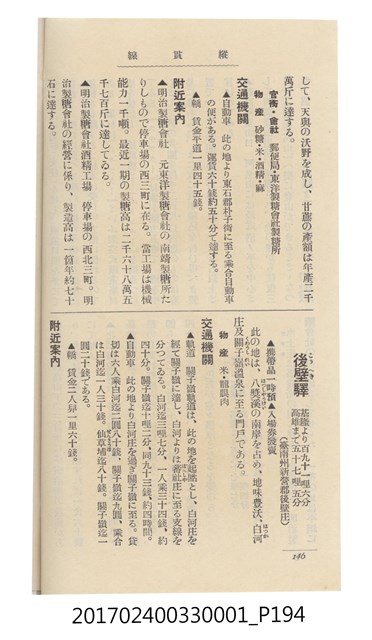 縱貫線
して、天與の沃野を成し、甘蔗の產額は年產二千
萬斤に達する。
官衙・會社 郵便局・東洋製糖會社製糖所
物產 砂糖・米・酒精・麻
交通機關
▲自動車 此の地より東石郡朴子街に至る乘合自動車
の便がある。運賃六十錢約五十分で達する。
▲轎 賃金平道一里四十五錢。
附近案內
▲明治製糖會社 元東洋製糖會社の南靖製糖所た
りしもので停車場の西三町に在る。當工場は機械
能力一千噸。最近一期の製糖高は二千六十八萬五
千七百斤に達してゐる。
▲明治製糖會社酒精工場 停車場の西北三町。明
治製糖會社の經營に係り、製造高は一箇年約七十
石に達する。
後壁驛
基隆より百九十一哩六分
高雄まで五十七哩五分
(臺南州新營郡後壁庄)
▲携帶品一時預▲入場券發賣
此の地は、八獎溪の南岸を占め、地味豐沃、白河
庄及關子嶺溫泉に至る門戶である。
物產 米・龍眼肉
交通機關
▲軌道 關子嶺軌道は、此の地を起點とし、白河庄を
經て關子嶺に達し、白河よりは蕃社庄に至る支線を
分つてゐる。白河迄三哩七分、一人乘三十四錢、約
四十分。關子嶺迄十哩二分、同九十三錢、約四時間。
▲自動車 此の地より白河庄を過ぎ關子嶺に至る。貸
切は六人乘白河迄二圓八十錢、關子嶺迄九圓、乘合
は白河迄一人三十錢。仙草埔迄八十錢。關子嶺迄一
圓二十錢である。
▲轎 賃金二人舁一里六十錢。
附近案內
146
201702400330001_P194